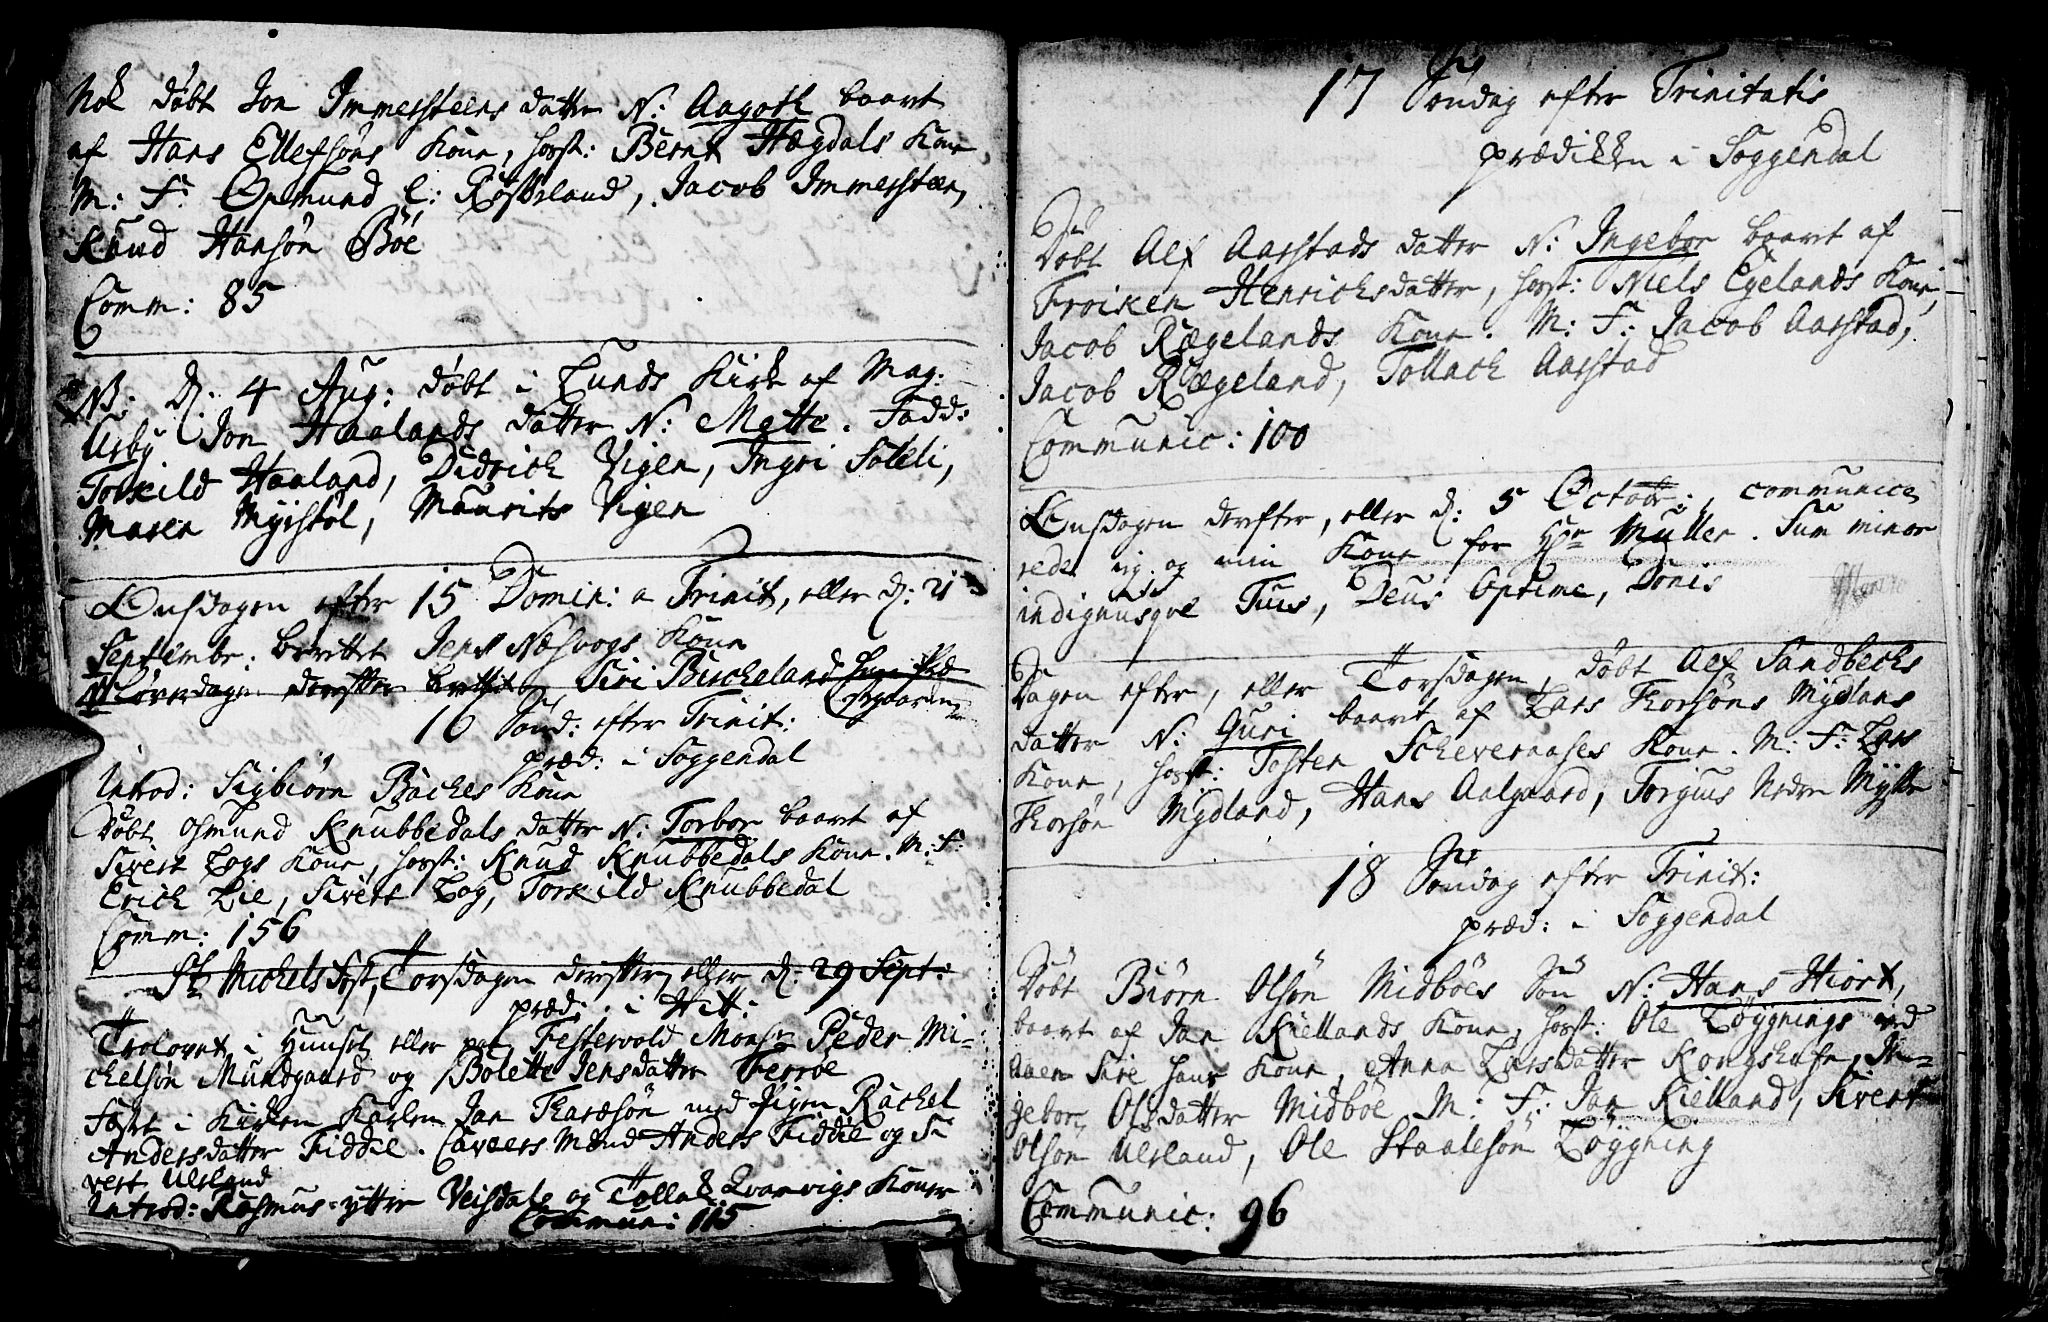 Nok døbt Jon Immersteens datter N: Aagoth baaret
af Hans Ellefsøns Kone, horst: Bernt Hægdals Kone
M: F: Opmund l: Røsseland, Jacob Immersteen,
Knud Hansøn Bøe
Comm: 85
NB. d: 4 Aug: døbt i Lunds Kirke af Mag:
Arby Jon Haalands datter N: Mette. Fadd:
Torkild Haaland, Didrich Vigen, Ingri Soleli,
Maren Myrstol, Maurits Vigen
Onsdagen efter 15 Domin: a Trinit, eller d: 21
Septembr: berettet Jens Næsvogs Kone
Løverdagen derefter Siri Bircheland
16 Sønd: efter Trinit:
præd: i Soggendal
Introd: Sigbiørn Baches Kone
Døbt Osmund Knubbedals datter N: Torbor baaret af
Sivert Logs Kone, horst: Knud Knubbedals Kone. M: F:
Erich Lie, Sivert Log, Torkild Knubbedal
Comm: 156
St Michels fest, Torsdagen derefter, eller d: 29 Sept:
præd: i Hit:
Trolovet i Huuset eller paa Festervold Monsr Peder Mi-
chelsøn Mundgaard og Bolette Jensdatter Ferrøe
Fæst i Kirken Karlen Jan Tharæsøn med Pigen Rachel
Andersdatter Fiddie. Caveers Mænd Anders Fiddie og Si
vert Ursland
Introd: Rasmus ytter Veisdals og Tollak Qvanvigs Koner
Commun: 115
17 Søndag efter Trinitatis
prædikken i Soggendal
Døbt Alf Aarstads datter N: Ingebor baaret af
Froiken Henrichsdatter, horst: Niels Egelands Kone,
Jacob Rægelands Kone. M: F: Jacob Aarstad,
Jacob Rægeland, Tollach Aarstad
Communic: 100
Onsdagen derefter, eller d: 5 Octobr:, communice
rede ieg og min Kone for Hr Müller. Sum minor
indignusqve Tuis, Deus Optime, Donis
Dagen efter, eller Torsdagen, døbt Alf Sandbechs
datter N: Guri baaret af Lars Thorsøns Mydlans
Kone, horst: Tosten Scheveraases Kone. M: F: Lars
Thorsøn Mydland, Hans Aalgaard, Torgius Nedre Mysse
18 Søndag efter Trinit:
præd: i Soggendal
Døbt Biørn Olsøn Midbøes Søn N: Hans Hiort,
baaret af Jan Kiellands Kone, horst: Ole Løygnings ved
Aaen Sire hans Kone, Anna Larsdatter Kongshafn, In-
gebor Olsdatter Midbøe M: F: Jan Kielland, Sivert
Olsøn Ursland, Ole Staalesøn Løygning
Communic: 96